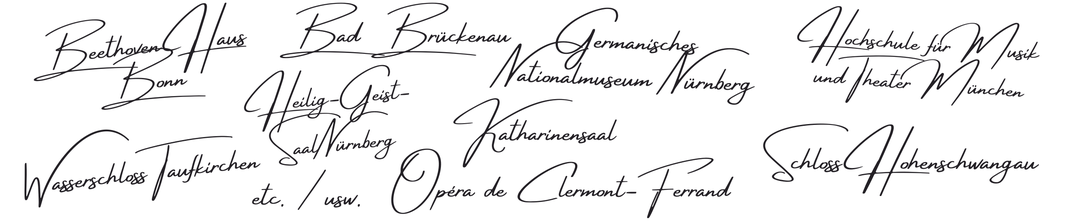 Beethoven-Haus
Bonn
Bad Brückenau
Germanisches
Nationalmuseum Nürnberg
Hochschule für Musik
und Theater München
Heilig-Geist-
Saal Nürnberg
Katharinensaal
Wasserschloss Taufkirchen
etc. / usw.
Opéra de Clermont-Ferrand
Schloss Hohenschwangau